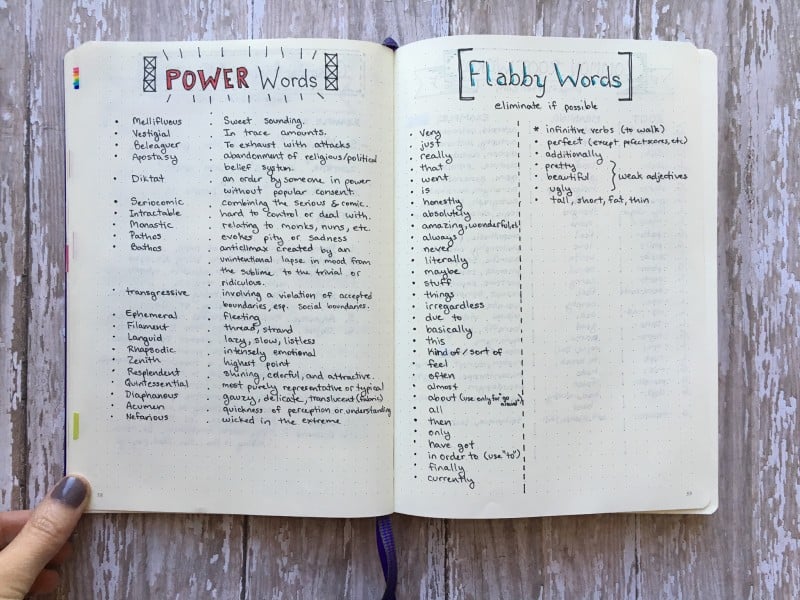 POWER Words
• Mellifluous . Sweet sounding.
• Vestigial . In trace amounts.
• Beleaguer . To exhaust with attacks
• Apostasy . abandonment of religious/political
belief system.
• Diktat . an order by someone in power
without popular consent.
• Seriocomic . combining the serious & comic.
• Intractable . hard to control or deal with.
• Monastic . relating to monks, nuns, etc.
• Pathos . evokes pity or sadness
• Bathos . anticlimax created by an
unintentional lapse in mood from
the sublime to the trivial or
ridiculous.
• transgressive . involving a violation of accepted
boundaries, esp. social boundaries.
• Ephemeral . fleeting
• Filament . thread, strand
• Languid . lazy, slow, listless
• Rhapsodic . intensely emotional
• Zenith . highest point
• Resplendent . shining, colorful, and attractive.
• Quintessential . most purely representative or typical
• Diaphanous . gauzy, delicate, translucent (fabric)
• Acumen . quickness of perception or understanding
• Nefarious . wicked in the extreme
58
[Flabby Words]
eliminate if possible
• very
• just
• really
• that
• went
• is
• honestly
• absolutely
• amazing, wonderful,etc
• always
• never
• literally
• maybe
• stuff
• things
• irregardless
• due to
• basically
• this
• kind of / sort of
• feel
• often
• almost
• about (use only for "go
around")
• all
• then
• only
• have got
• in order to (use "to")
• finally
• currently
* infinitive verbs (to walk)
• perfect (except perfect scores, etc)
• additionally
• pretty
• beautiful } weak adjectives
• ugly
• tall, short, fat, thin.
59